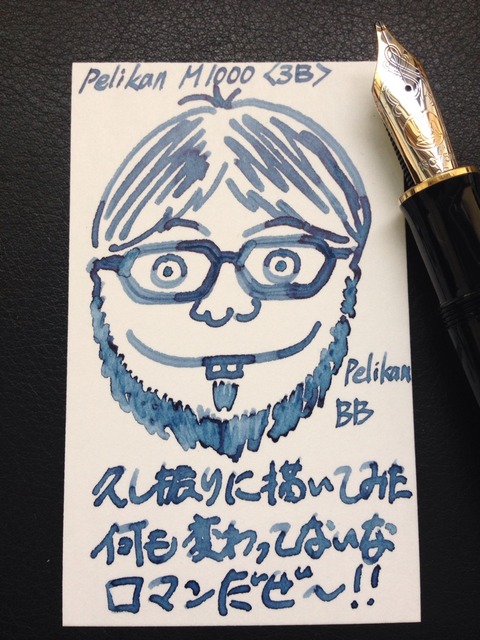 Pelikan M1000 <3B>
Pelikan
BB
久し振りに描いてみた
何も変わってないな
ロマンだぜ〜!!